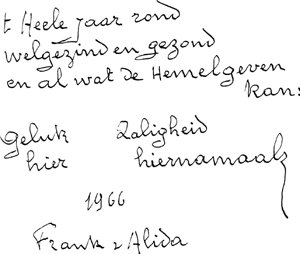 t Heele jaar rond
welgezind en gezond
en al wat de Hemel geven
kan:
geluk zaligheid
hier hiernamaals
1966
Frank & Alida